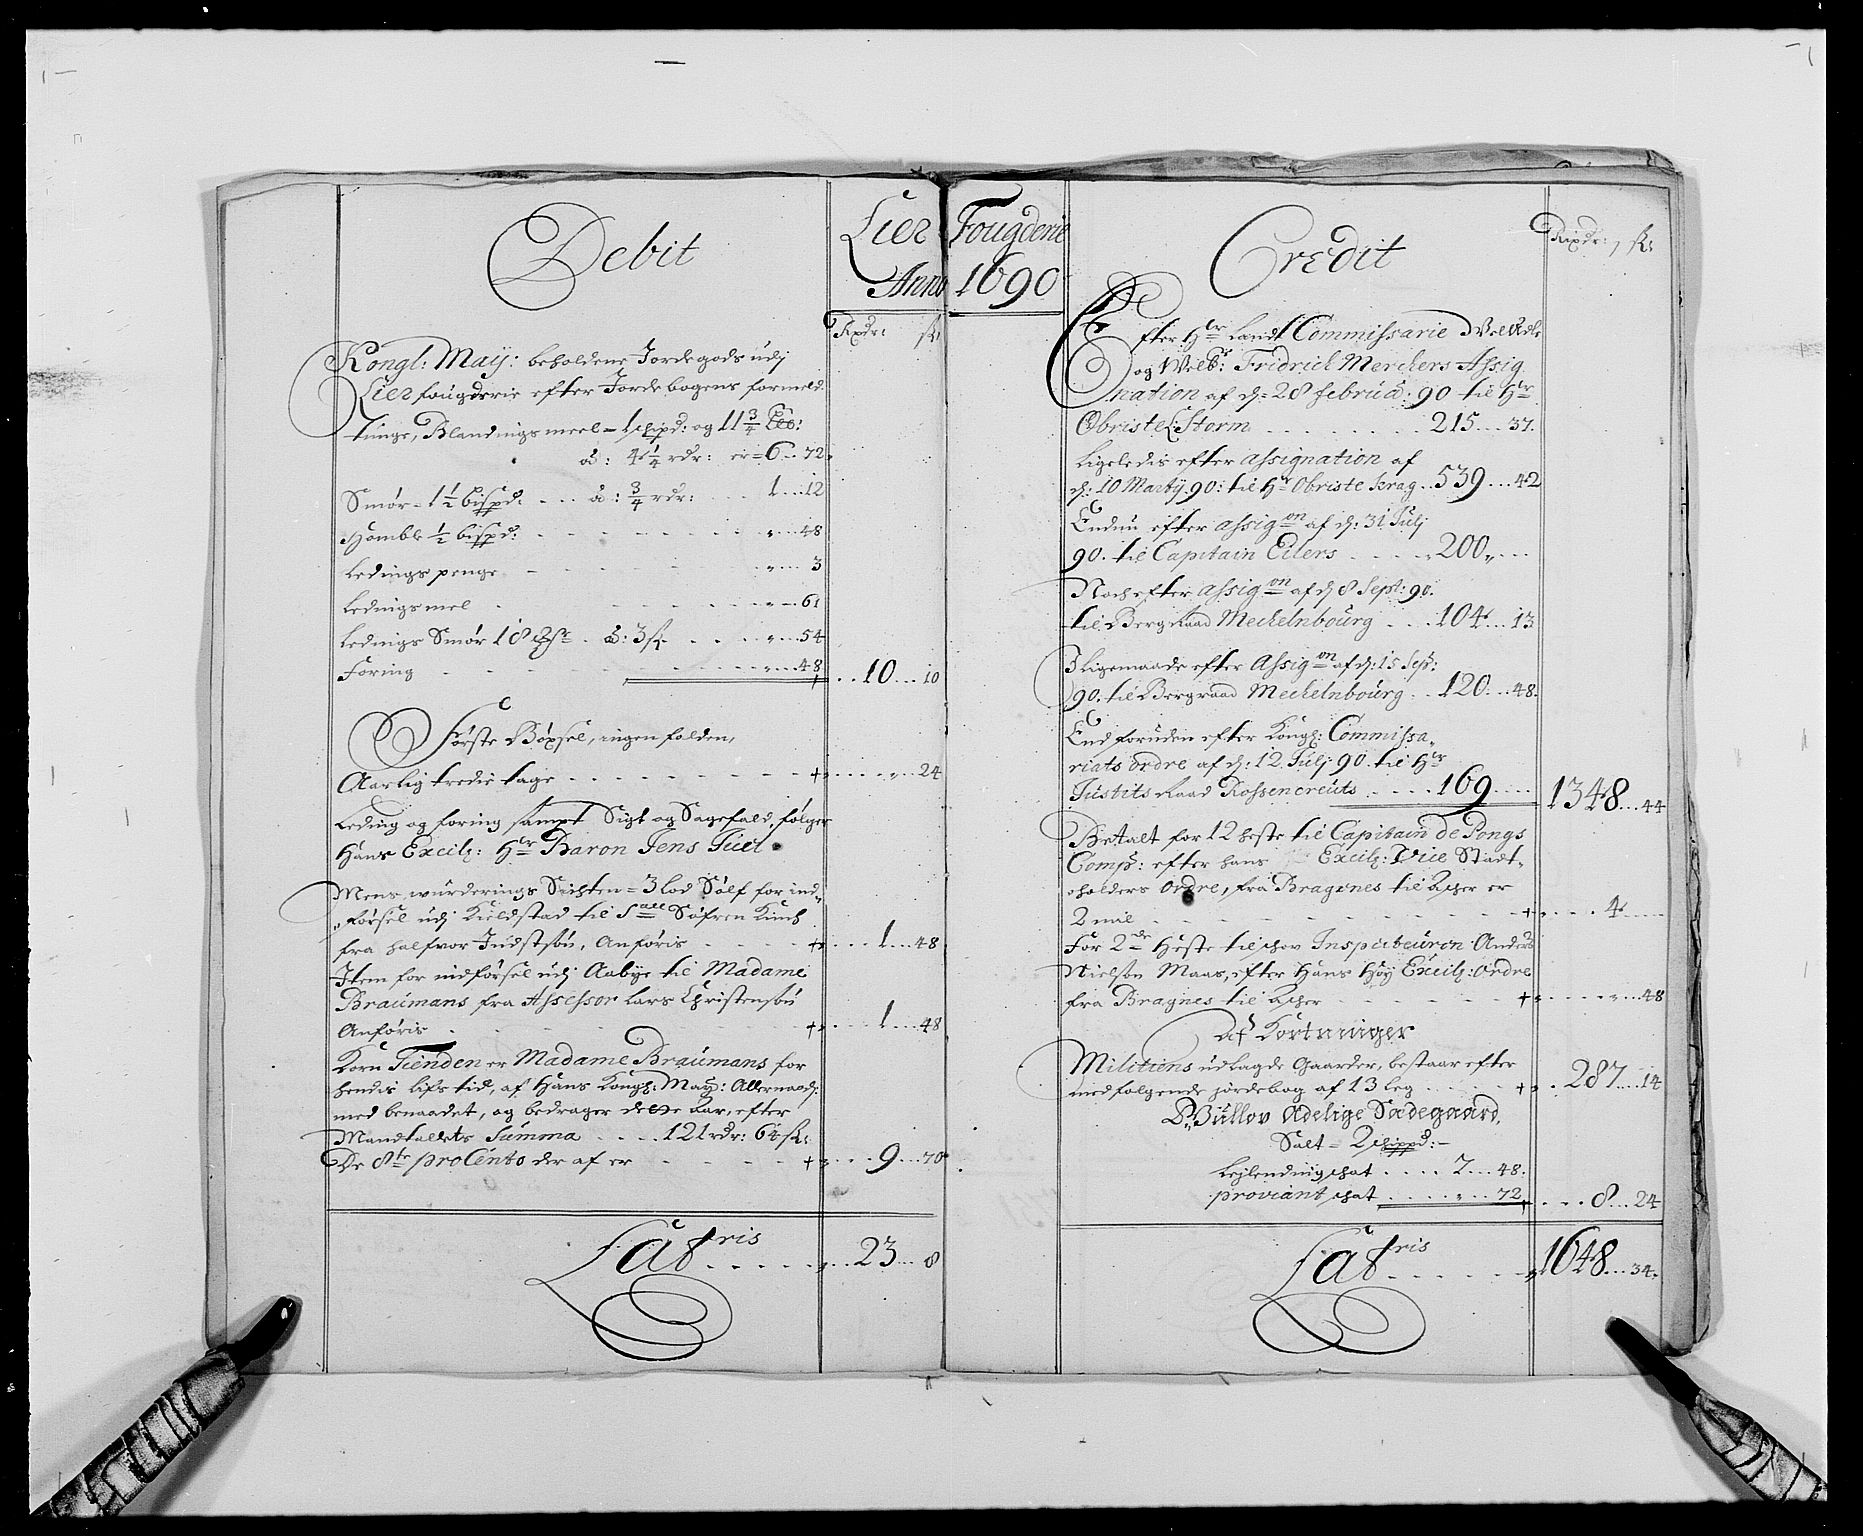 Debit
Lier Fougderie
Anno 1690
Rixdr: sk:
Kongl: May: beholdene Jordegods udj
Lier fougderie efter Jordebogens formeld:
Tunge, Blandnings meel = 1 schipd: og 11 3/4 Lb:
à: 4 1/4 rdr: er = 6 .. 72
Smør = 1 1/2 bispd: ... à: 3/4 rdr: ... 1 ... 12
Homble 1/2 bispd: ... „ ... 48
Ledings penge ... „ ... 3
Ledings mel ... „ ... 61
Ledings Smør 18 ... à: 3 sk ... „ ... 54
Foring ... „ ... 48 ... 10 ... 10
Første Bøxsel, ingen falden,
Aarlig tredie tage ... „ ... 24
Leding og foring sampt Sigt og Sagefald, følger
Hans Excell: Hr Baron Jens Juel
Mens wurderings Sichten = 3 lod Sølf for ind„
„førsel udj Kieldstad til Søfren
fra halfvor Anføris ... 1 ... 48
Item for indførsel udj Aabye til Madame
Braumans fra Assessor Lars Christensøn
Anføris ... 1 ... 48
Korn Tienden er Madame Braumans for
hendis lifs tid, af Hans Kongl: May: Allernaad:
med benaadet, og bedrager dette Aar, efter
Mandtallets Summa .... 121 rdr: 64 sk:
De 8te pro Cento der af er ... 9 ... 70
Latris ..... 23 ... 8
Credit
Rixdr: sk:
Efter Hr Landt Commissarie Vel Edle
og Velb: Fridrich Merckers Assig
nation af d: 28 Februa: 90 til Hr
Obriste L: Storm ........ 215 ... 37.
Ligeledis efter assignation af
d: 10 Marty 90: til Hr Obriste Krag .. 539 ... 42
Endnu efter assigon af d: 31 Julj
90. til Capitain Eilers .... 200 „ ...
Noch efter assigon af d 8 Sept: 90.
til Berg Raad Mechelnbourg ... 104 ... 13
I ligemaade efter Assigon af d: 15 Sep:
90. til Bergraad Mechelnbourg .. 120 ... 48.
End foruden efter Kongl: Commissa„
riats ordre af d: 12. Julj 90. til Hr
Justits Raad Rossencreuts .... 169 ... 1348 ... 44
Betalt for 12 heste til Capitain de Pongs
Comp: efter hans Excell: Vice Stadt„
„holders Ordre, fra Bragenes til Acher er
2 mil ... 4 ...
For 2de Heste til Inspecteuren Anders
Nielsøn Maas, efter Hans Høy Excell: Ordre
fra Bragnes til Acher ... „ ... 48
Af Kortninger
Militiens udlagde Gaarder, bestaar efter
medfølgende jordebog af 13 leg ... 287 ... 14
Adelige Sædegaard,
Salt = 2 schippd: –
Lejlending schat .... 7 ... 48.
proviant schat .... „ ... 72 ... 8 ... 24
Latris ...... 1648 ... 34.